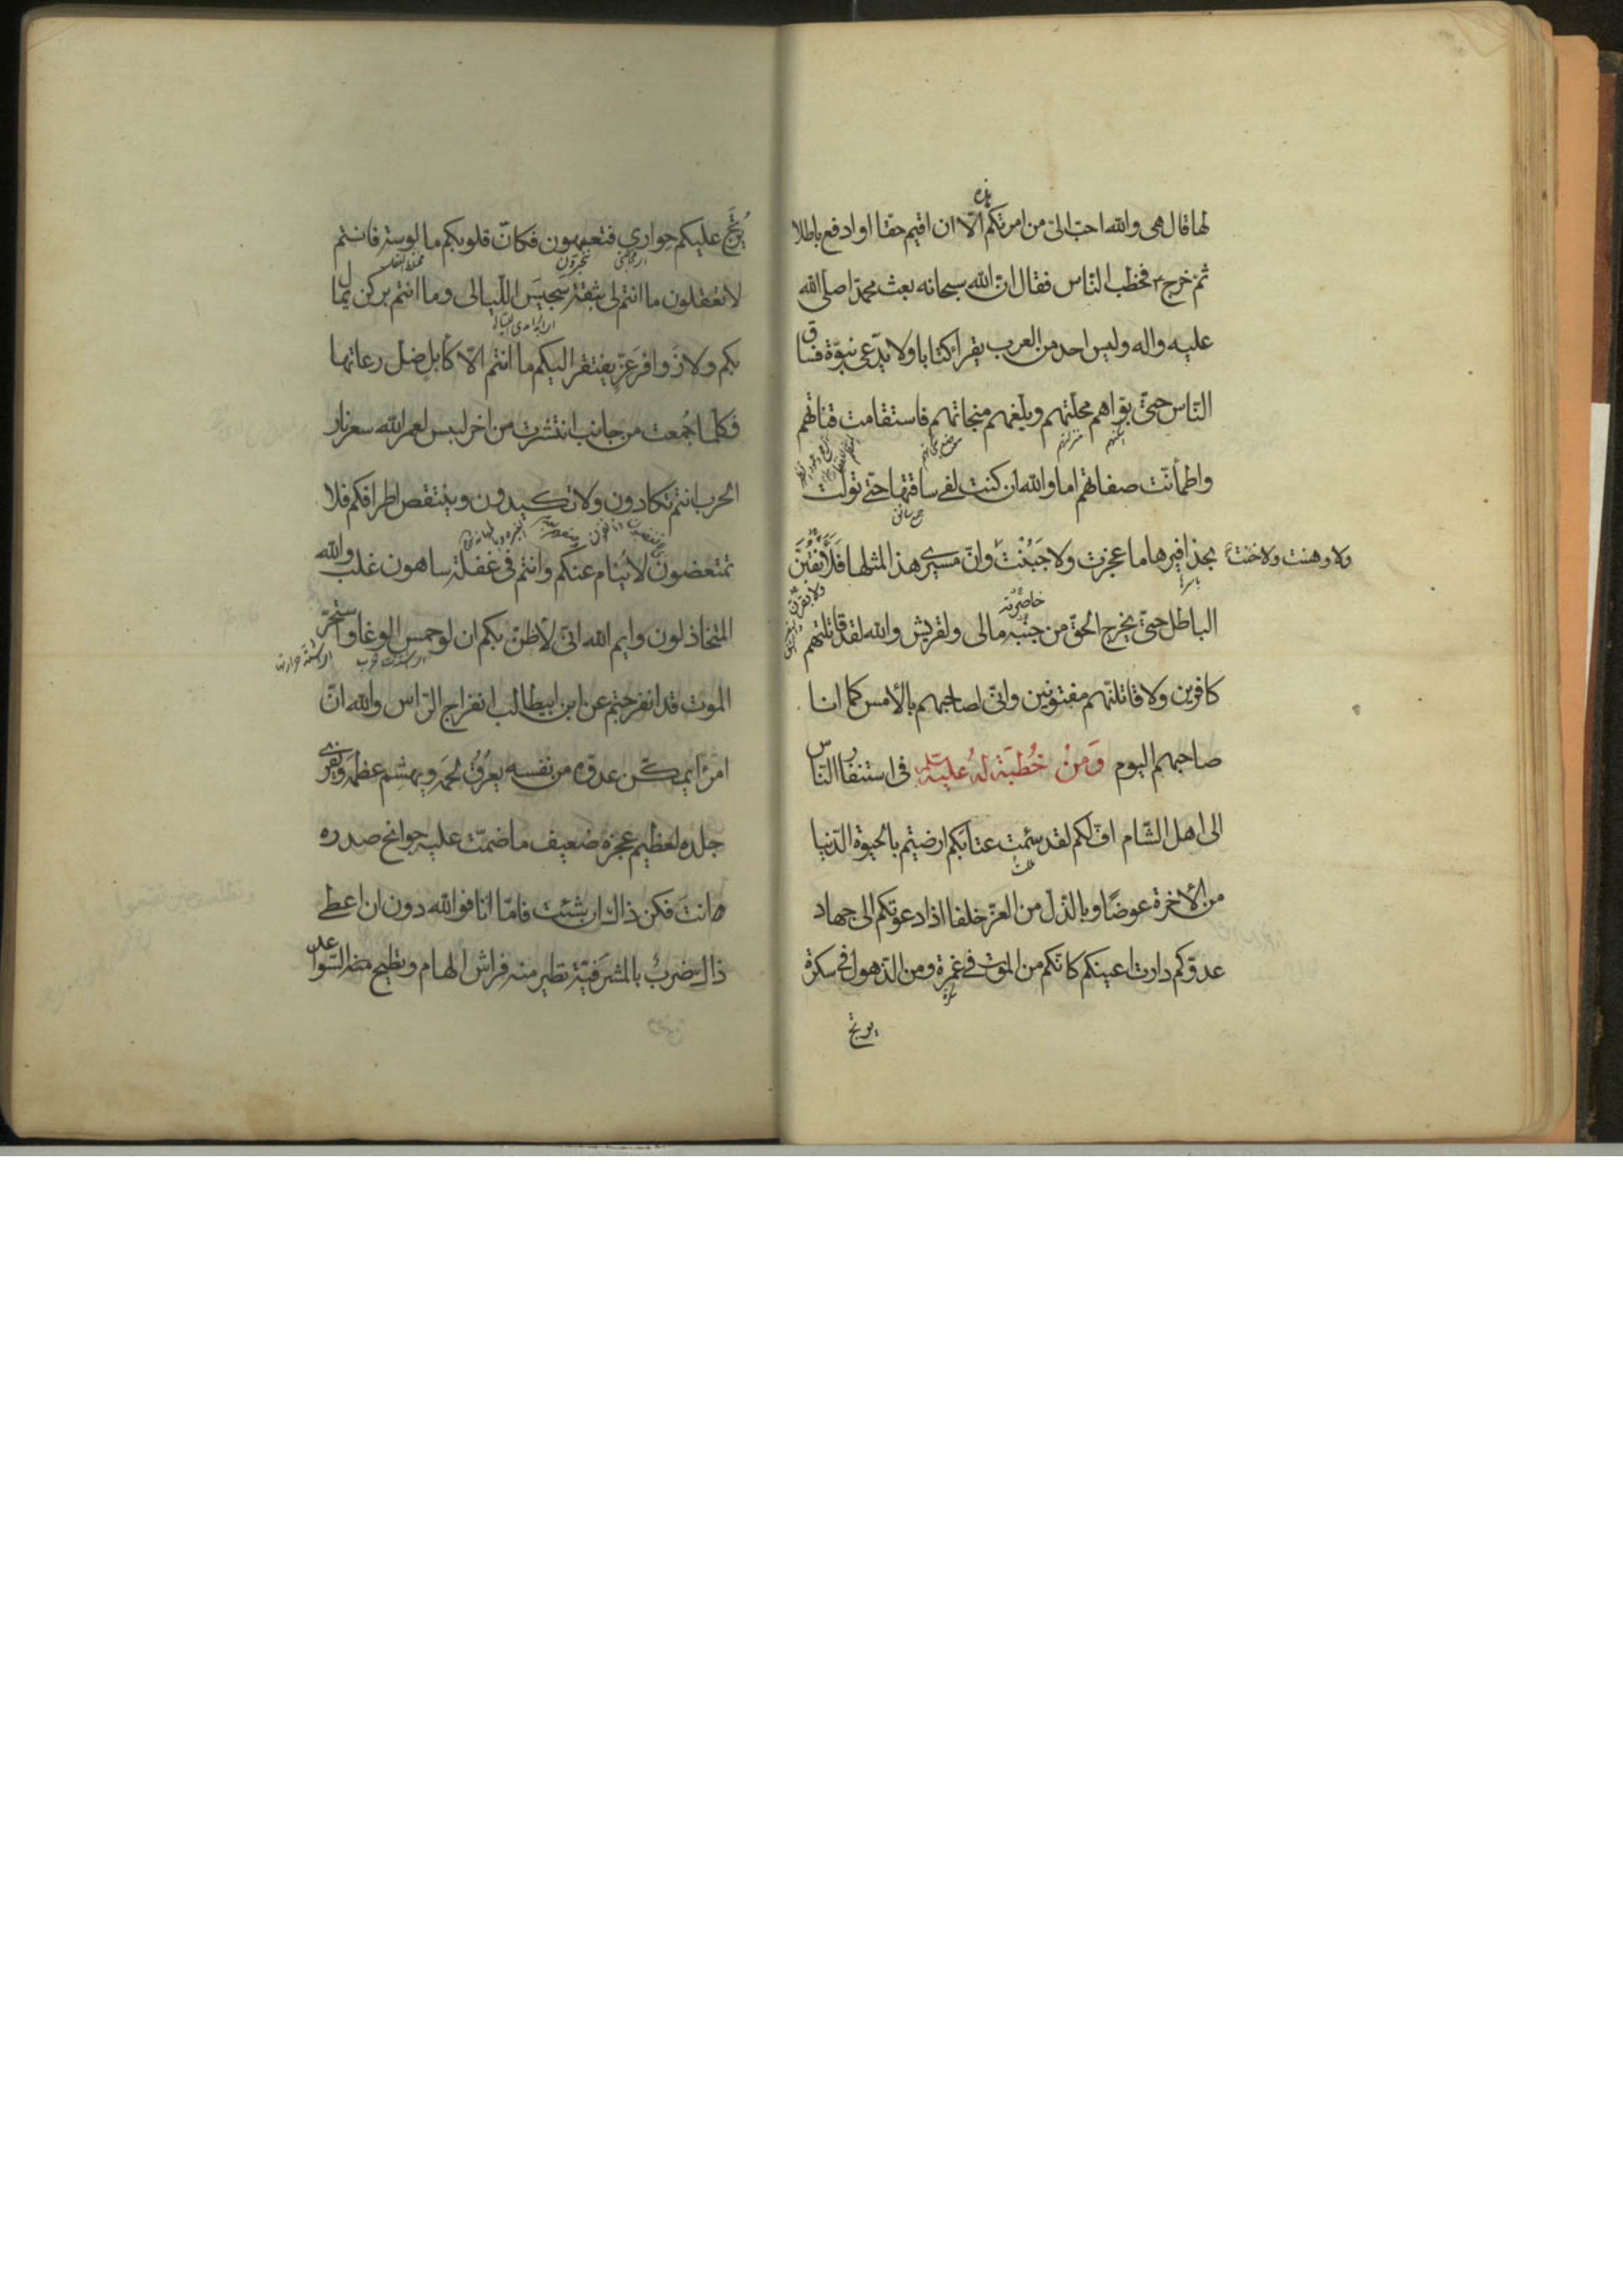 هذه
لها قال هى والله احبّ الىّ من امرتكم الّا ان اقيم حقّا او ادفع باطلا
ثمّ خرج فخطب النّاس فقال انّ الله سبحانه بعث محمدّا صلى الله
عليه واله وليس احد من العرب يقرا كتابا ولا يدّعى نبوّة فساق
النّاس حتىّ بوّاهم محلّتهم وبلّغهم منجاتهم فاستقامت قناتهم
واطمأنّت صفاتهم اما والله ان كنت لفى ساقتها حتّى تولّت
بحذافيرها ما عجزت ولا جَبُنْتُ وانّ مسيرى هذا لمثلها فَلَأَنْقُبَنَّ
ولا وهنت ولا خنت
الباطل حتىّ يخرج الحقّ من جَنْبِه مالى ولقريش والله لقد قاتلتهم
خاصرته
كافرين ولاقاتلنّهم مفتونين وانّى لصاحبهم بالأمس كما انا
صاحبهم اليوم وَمِنْ خُطبَة لهُ عليه السّلم فى استنفار النّاس
الى اهل الشّام افّ لكم لقد سئمت عتابكم ارضيتم بالحيوة الدّنيا
من الأخرة عوضًا وبالذّل من العزّ خلفا اذا دعوتكم الى جهاد
عدوّكم دارت اعينكم كانّكم من الموت فى غمرة ومن الذّهول فى سكرة
يرتج
يُرْتَجُ عليكم حِوارى فتعمهون فكانّ قلوبكم مالوسة فانتم
لا تعقلون ما انتم لى بثقة سَجيسَ اللّيالى وما انتم بركن يمال
بكم ولا زوافر عزّ يفتقر اليكم ما انتم الّا كأبل ضلّ رعاتها
فكلّما جُمعت من جانب انتشرت من اخر لبيس لعمر الله سعر نار
الحرب انتم تكادون ولا تكيدون وينتقص اطرافكم فلا
تمتعضون لا يُنام عنكم وانتم فى غفلة ساهون غلب والله
المتخاذلون وايم الله انّى لأظنّ بكم ان لو حمس الوغا واستحرّ
الموت قد انفرجتم عن ابن ابيطالب انفراج الرّاس والله انّ
امرًا يمكّن عدوّه من نفسه يعرُقُ لحمَه ويهشِم عظمَه ويفرى
جلده لعظيم عجزه ضعيف ما ضمّت عليه جوانح صدره
انتَ فكن ذاك ان شئت فامّا انا فو الله دون ان اعطى
ذلك ضربٌ بالمشرَفيّة تطير منه فراش الهام وتطيح منه السّواعد